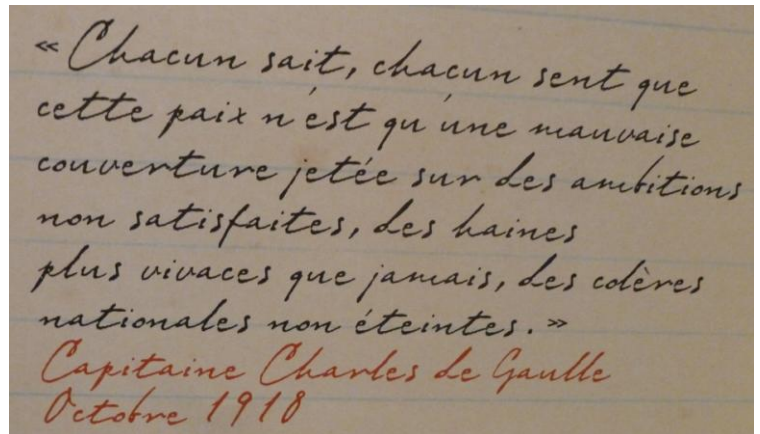 « Chacun sait, chacun sent que
cette paix n'est qu'une mauvaise
couverture jetée sur des ambitions
non satisfaites, des haines
plus vivaces que jamais, des colères
nationales non éteintes. »
Capitaine Charles de Gaulle
Octobre 1918